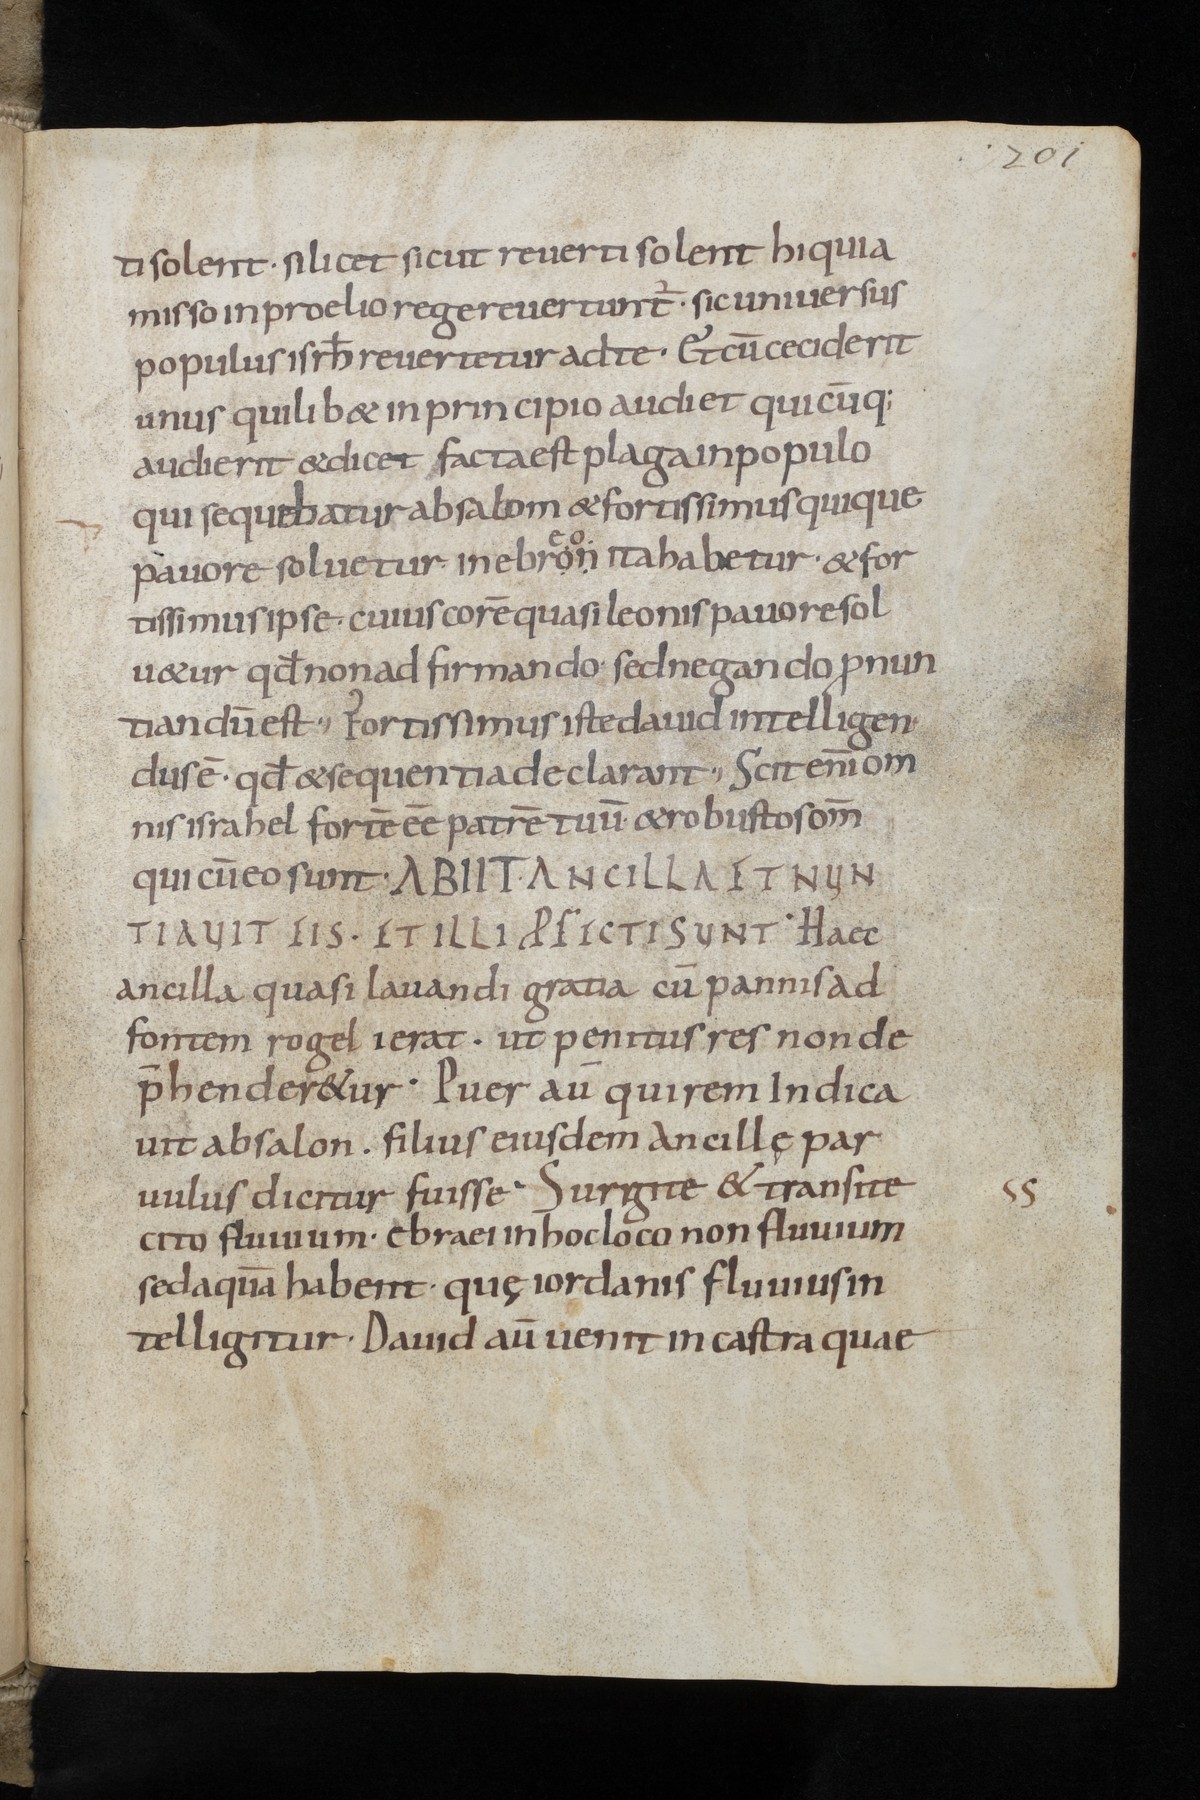 201
ti solent · silicet sicut reverti solent hi quia
misso in proelio rege revertunt̄ · sic universus
populus isrƀ revertetur ad te · Et cū ceciderit
unus quilib& in principio audiet quicūq;
audierit & dicet facta est plaga in populo
qui sequebatur absalom & fortissimus quique
pavore solvetur in ebreon ita habetur · & for
tissimus ipse · cuius cor ē quasi leonis pavore sol
v&ur qđ non adfirmando · sed negando ꝓnun
tiandū est ·, Fortissimus iste david intelligen
dus ē · qđ & sequentia declarant ·, Scit eni om
nis israhel fortē eē patrē tuū · & robustos om̄
qui cū eo sunt · ABIIT · ANCILLA ET NUN
TIAUIT EIS · ET ILLI PFECTI SUNT · Haec
ancilla quasi lavandi gratia cū pannis ad
fontem rogel ierat · ut penitus res non de
p̄hender&ur · Puer aū qui rem Indica
uit absalon · filius eiusdem Ancillę par
uulus dicitur fuisse · Surgite & transite
ss
cito fluuium · ebraei in hoc loco non fluuium
sed aquā habent · quę iordanis fluuius in
telligitur · David aū uenit in castra quae